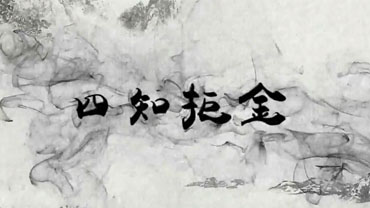 四知拒金